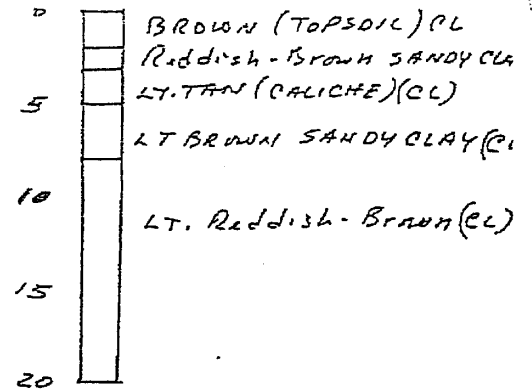 0
BROWN (TOPSOIL) CL
Reddish-Brown SANDY CLA
5
LT. TAN (CALICHE) (CL)
LT BROWN SANDY CLAY (CL
10
LT. Reddish-Brown (CL)
15
20